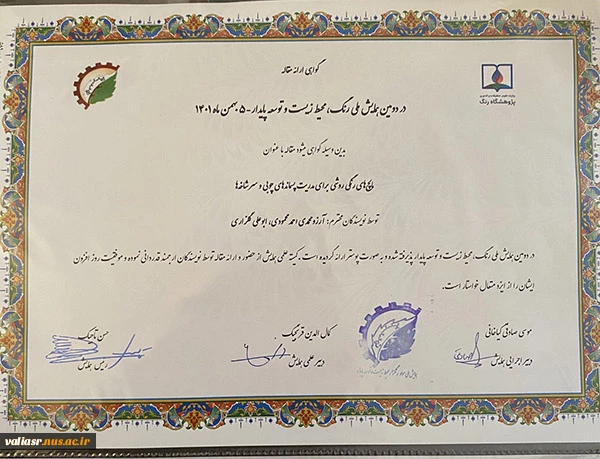 گواهی ارائه مقاله
وزارت علوم، تحقیقات و فناوری
پژوهشگاه رنگ
در دومین همایش ملی رنگ، محیط زیست و توسعه پایدار - ۵ بهمن ماه ۱۴۰۱
بدین وسیله گواهی میشود مقاله با عنوان
مالچ‌های رنگی روشی برای مدیریت پسماندهای چوبی و سرشاخه‌ها
توسط نویسندگان محترم: آرزو محمدی، احمد محمودی، ابوعلی گلزاری
در دومین همایش ملی رنگ، محیط زیست و توسعه پایدار پذیرفته شده و به صورت پوستر ارائه گردیده است. کمیته علمی همایش از حضور و ارائه مقاله توسط نویسندگان ارجمند قدردانی نموده و موفقیت روز افزون
ایشان را از ایزد متعال خواستار است.
موسی صادقی کیاخانی
دبیر اجرایی همایش
کمال الدین قرنجیک
دبیر علمی همایش
حسن تاجیک
رئیس همایش
valiasr.nus.ac.ir